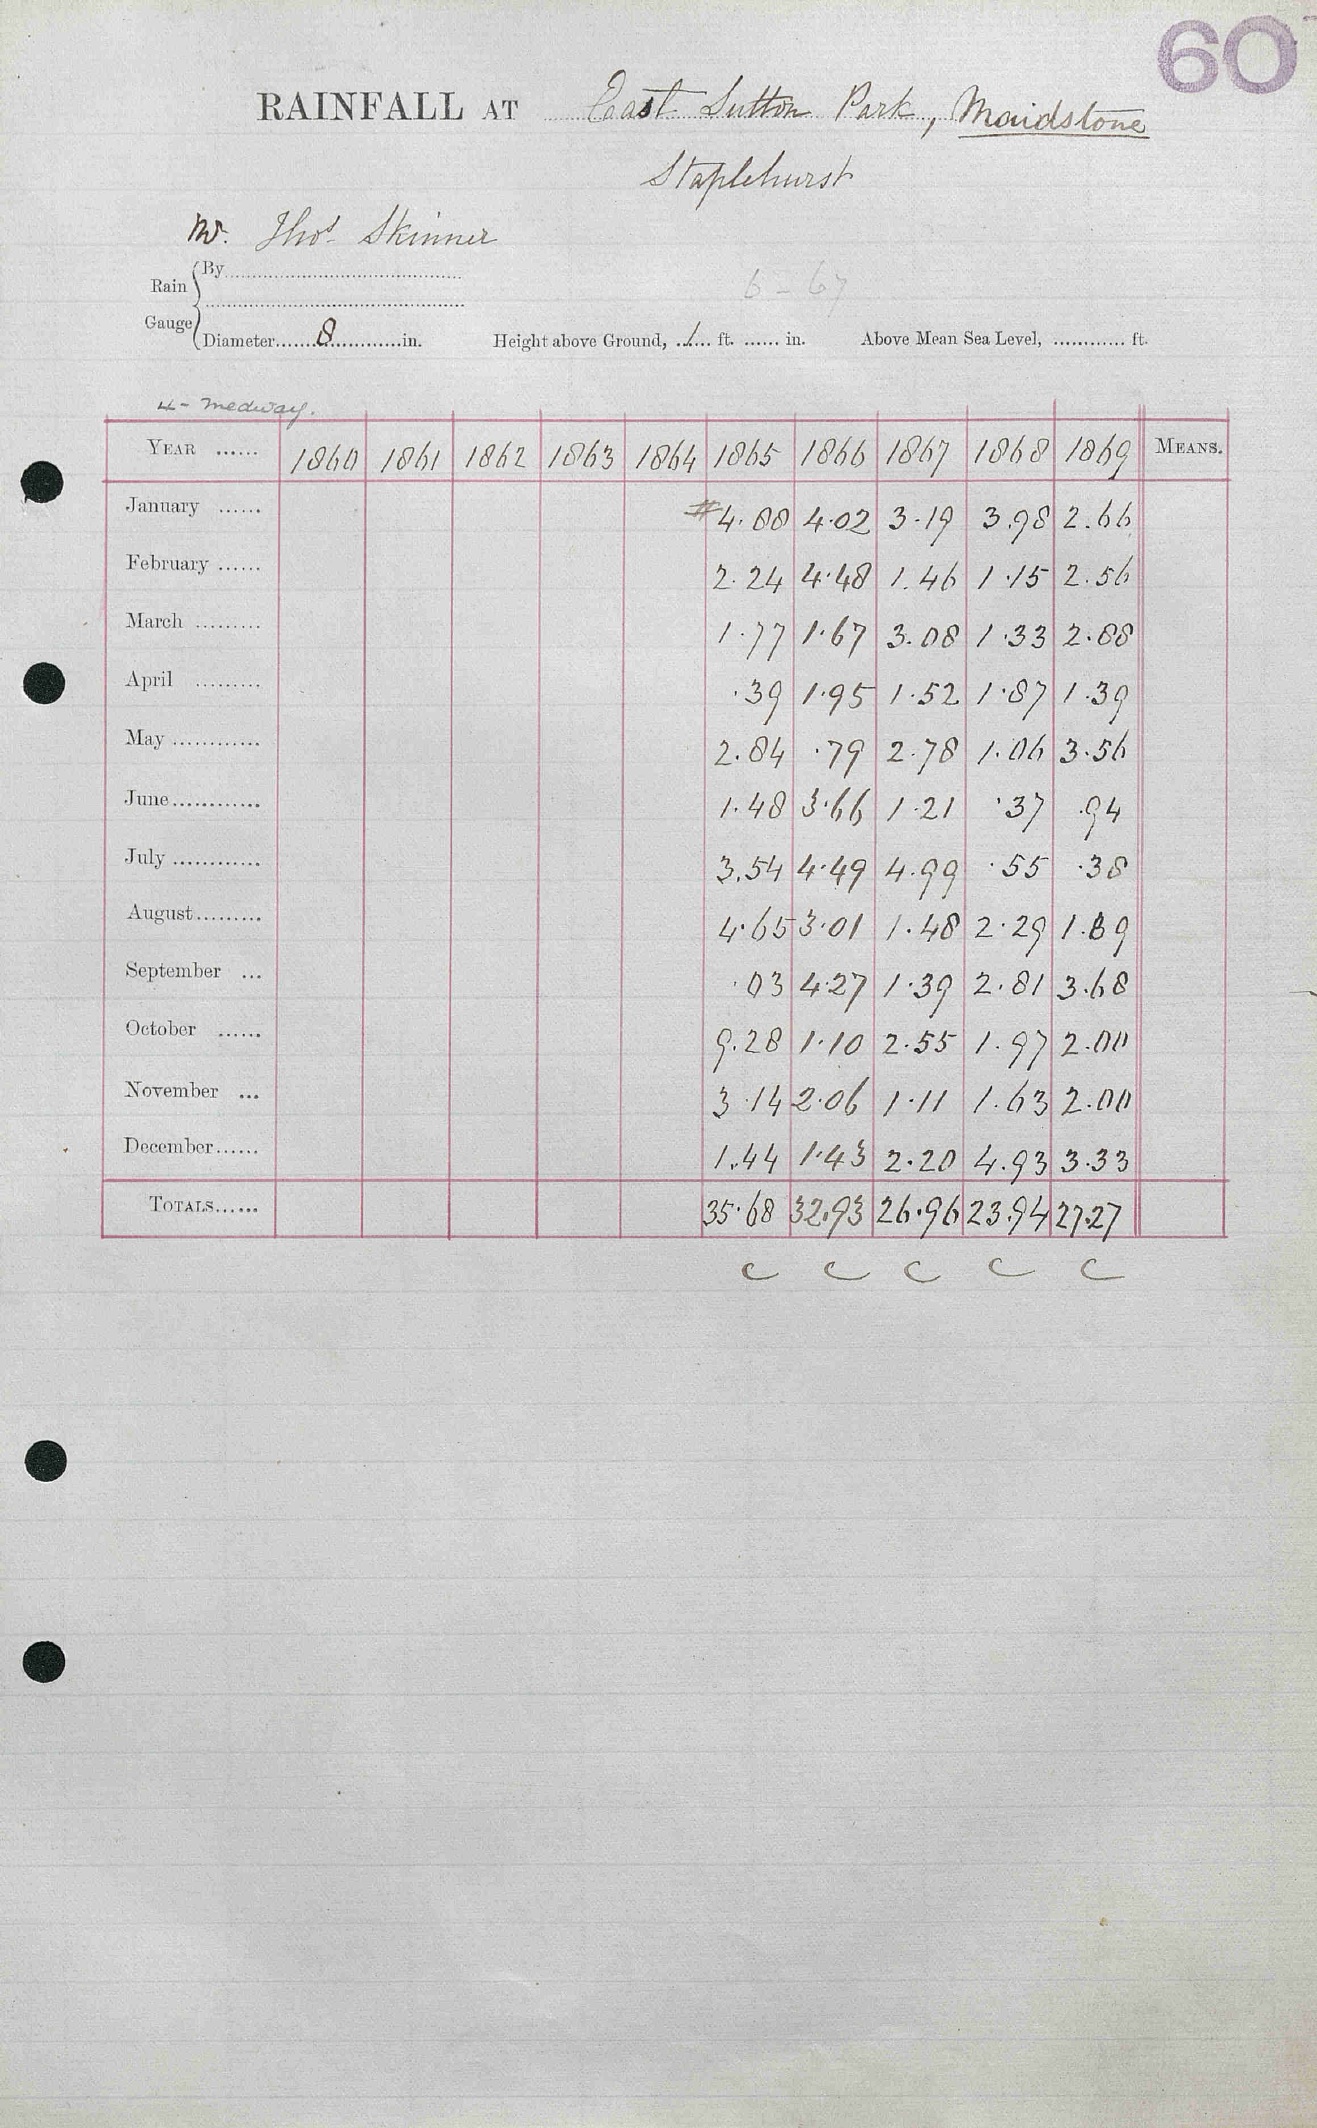 60
RAINFALL AT East Sutton Park, Maidstone
Staplehurst
Mr. Thos Skinner
Rain Gauge
By
6 - 67
Diameter 8 in. Height above Ground, 1 ft. in. Above Mean Sea Level, ft.
4 - Medway.
YEAR 1860 1861 1862 1863 1864 1865 1866 1867 1868 1869 MEANS.
January #4.88 4.02 3.19 3.98 2.66
February 2.24 4.48 1.46 1.15 2.56
March 1.77 1.67 3.08 1.33 2.88
April .39 1.95 1.52 1.87 1.39
May 2.84 .79 2.78 1.06 3.56
June 1.48 3.66 1.21 .37 .94
July 3.54 4.49 4.99 .55 .38
August 4.65 3.01 1.48 2.29 1.89
September .03 4.27 1.39 2.81 3.68
October 9.28 1.10 2.55 1.97 2.00
November 3.14 2.06 1.11 1.63 2.00
December 1.44 1.43 2.20 4.93 3.33
TOTALS 35.68 32.93 26.96 23.94 27.27
C C C C C